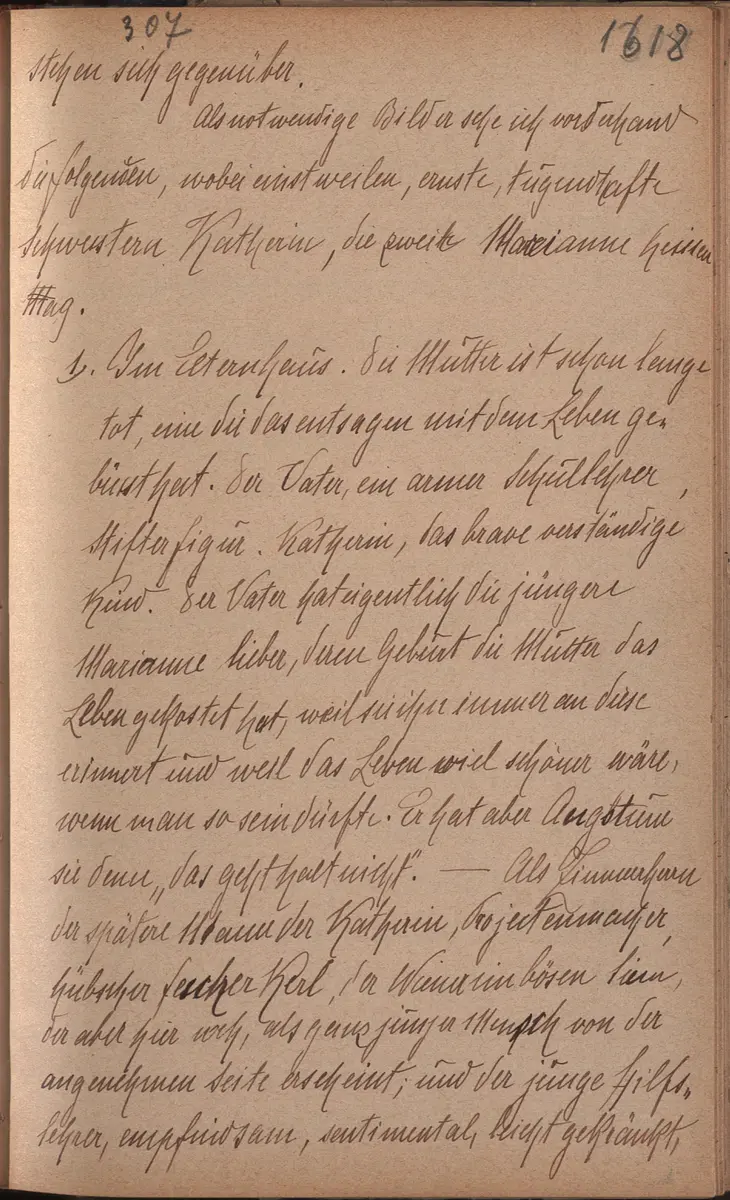 307
1618
stehen sich gegenüber.
Als notwendige Bilder sehe ich vorderhand
die folgenden, wobei einstweilen, ernste, tugendhafte
Schwestern Katherin, die zweite Marianne heissen
mag.
1. Im Elternhaus. Die Mutter ist schon lange
tot, eine die das entsagen mit dem Leben ge-
büsst hat. Der Vater, ein armer Schullehrer,
Stifterfigur. Katherin, das brave verständige
Kind. Der Vater hat eigentlich die jüngere
Marianne lieber, deren Geburt die Mutter das
Leben gekostet hat, weil sie ihn immer an diese
erinnert und weil das Leben viel schöner wäre,
wenn man so sein dürfte. Er hat aber Angst um
sie denn „das geht halt nicht". — Als Zimmerherrn
der spätere Mann der Katherin, Projektenmacher,
hübscher fescher Kerl, der Wiener im bösen Sinn,
der aber hier noch, als ganz junger Mensch von der
angenehmen Seite erscheint; und der junge Hilfs-
lehrer, empfindsam, sentimental, leicht gekränkt,